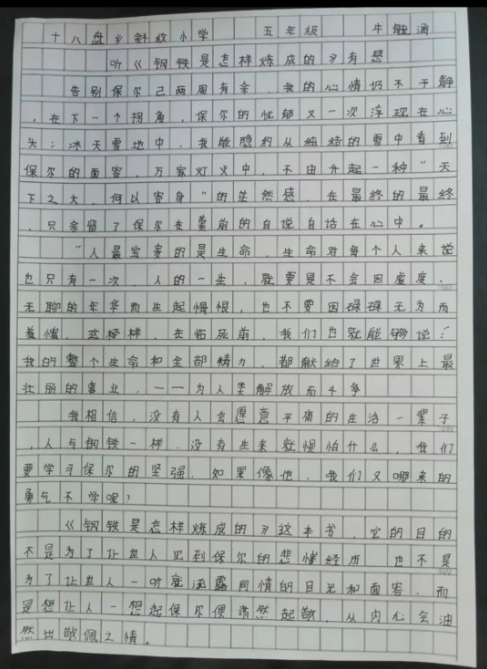 十八盘乡斜纹小学 五年级 牛
听《钢铁是怎样炼成的》有感
告别保尔已两周有余,我的心情仍不平静
,在下一个拐角,保尔的忧郁又一次浮现在心
头:冰天雪地中,我能隐约从的雪中看到
保尔的面容,万家灯火中,不由升起一种“天
下之大,何以容身”的茫然感。在最终的最终
,只余留了保尔在墓前的自说自话在心中。
“人最宝贵的是生命,生命对每个人来说
也只有一次,人的一生,就要是不会因虚度,
无聊的年华而生起悔恨,也不要因碌碌无为而
羞愧,这样,在临死前,我们也就能够说:
我的整个生命和全部精力,都献给了世界上最
壮丽的事业,——为人类解放而斗争
我相信,没有人会愿意平庸的生活一辈子
,人与钢铁一样,没有生来就惧怕什么,我们
要学习保尔的坚强,如果像他,我们又哪来的
勇气不学呢?
《钢铁是怎样炼成的》这本书,它的目的
不是为了让世人见到保尔的悲惨经历,也不是
为了让世人一听度流露同情的目光和面容,而
是想让人一想起保尔便肃然起敬,从内心会油
然出敬佩之情。